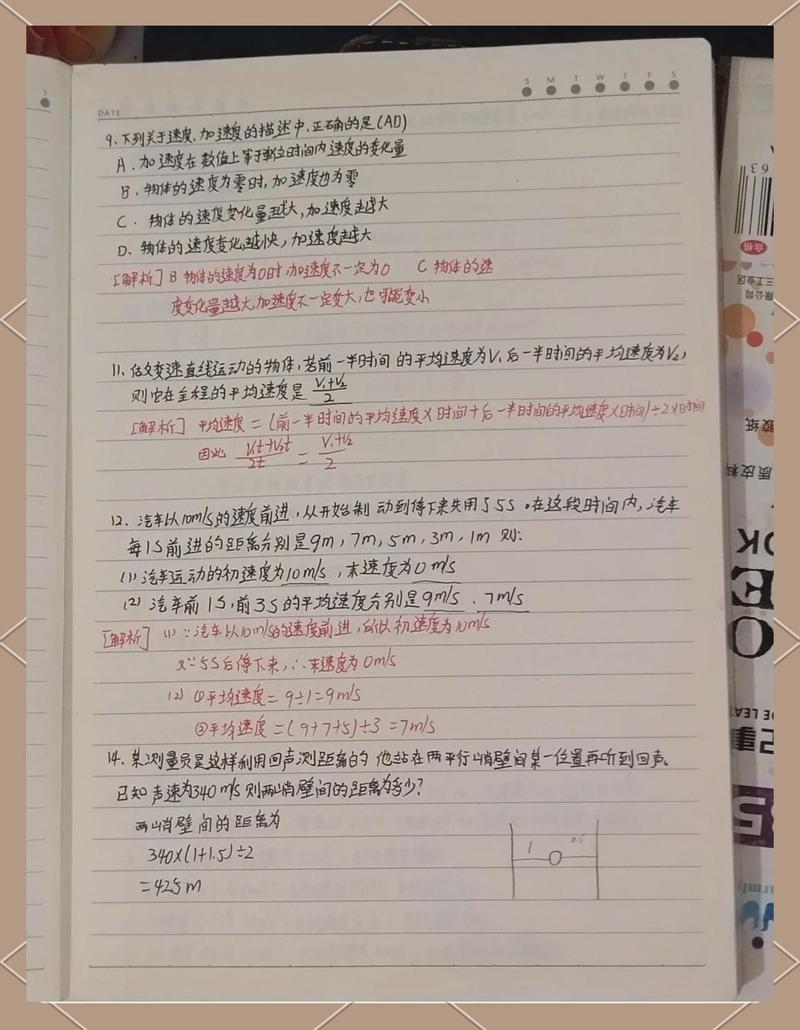 S
S M T W T F S
DATE
9、下列关于速度、加速度的描述中，正确的是(AD)
A、加速度在数值上等于单位时间内速度的变化量
B、物体的速度为零时，加速度也为零
C、物体的速度变化量越大，加速度越大
D、物体的速度变化越快，加速度越大
[解析] B 物体的速度为0时加速度不一定为0 C 物体的速
度变化量越大加速度不一定变大，也可能变小
11、做变速直线运动的物体，若前一半时间的平均速度为V₁后一半时间的平均速度为V₂，
则它在全程的平均速度是 (V₁+V₂)/2
[解析] 平均速度=(前一半时间的平均速度×时间+后一半时间的平均速度×时间)÷2×时间
因此 (V₁t+V₂t)/2t = (V₁+V₂)/2
12、汽车以10m/s的速度前进，从开始制动到停下来共用了5S。在这段时间内，汽车
每1S前进的距离分别是9m，7m，5m，3m，1m 则：
(1) 汽车运动的初速度为10m/s，末速度为0m/s
(2) 汽车前1S，前3S的平均速度分别是9m/s、7m/s
[解析] (1) ∵汽车以10m/s的速度前进，所以初速度为10m/s
又∵5S后停下来，∴末速度为0m/s
(2) ①平均速度=9÷1=9m/s
②平均速度=(9+7+5)÷3=7m/s
14、某测量员是这样利用回声测距离的 他站在两平行峭壁间某一位置再听到回声。
已知声速为340m/s则两峭壁间的距离为多少？
两峭壁间的距离为
340×(1+1.5)÷2
=425m
1
合格
三工业区
限公司
胶纸
质皮料
OK